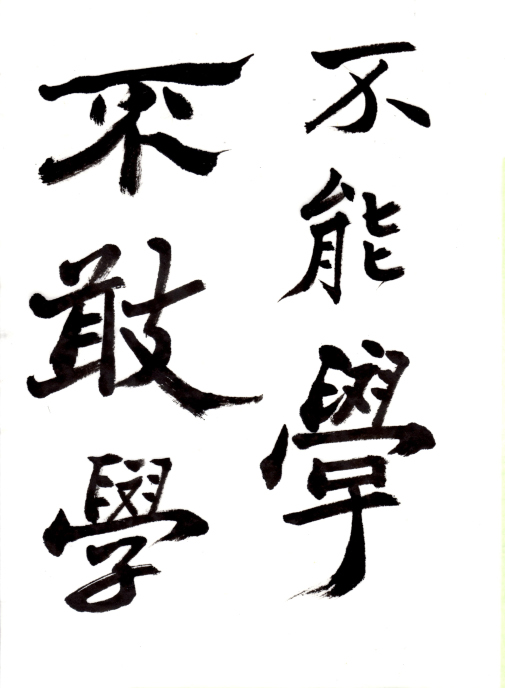 不能學
不敢學